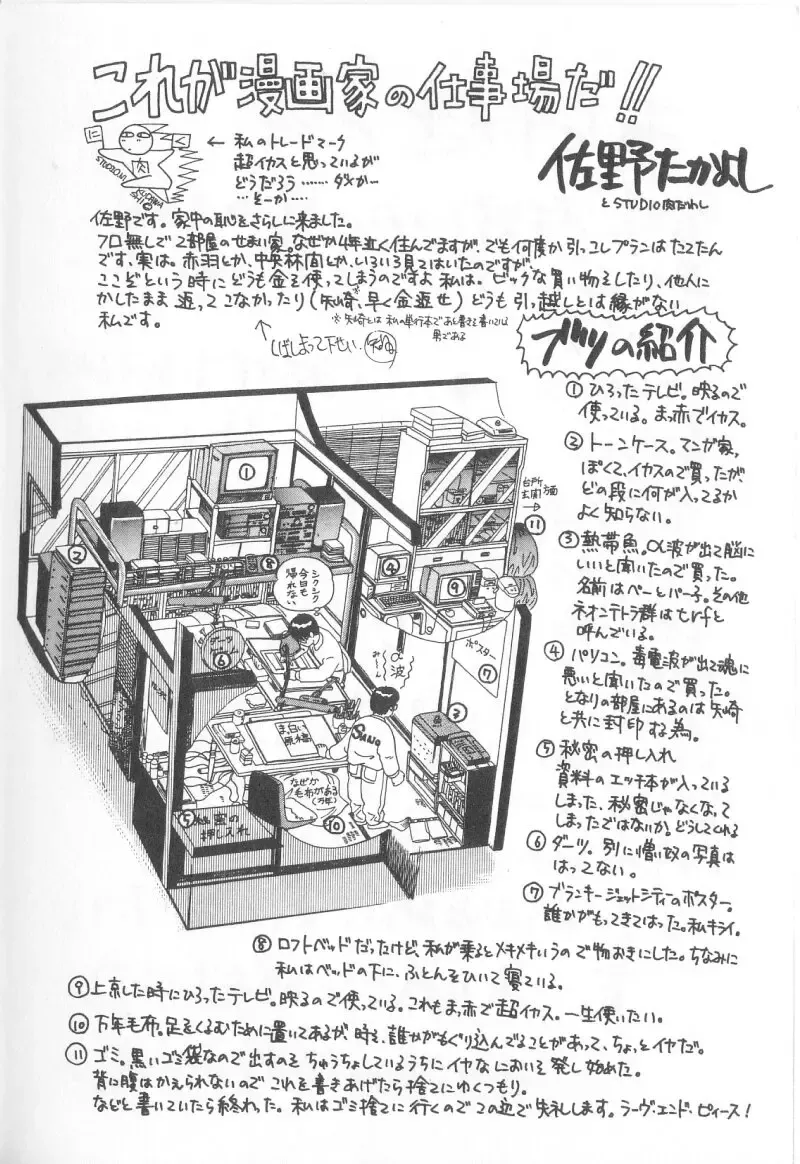 これが漫画家の仕事場だ!!
にく
肉
← 私のトレードマーク
超イカスと思っているが
どうだろう……ダメか…
…そーか….
佐野たかよし
と STUDIO肉たわし
佐野です。家中の恥をさらしに来ました。
フロ無しで2部屋のせまい家。なぜか4年近く住んでますが、でも何度か引っこしプランはたてたん
です、実は。赤羽とか、中央林間とか、いろいろ見てはいたのですが、
ここぞという時にどうも金を使ってしまうのですよ私は。ビックな買い物をしたり、他人に
かしたまま返ってこなかったり(矢崎※、早く金返せ)どうも引っ越しとは縁がない
私です。
※矢崎とは私の単行本であと書きを書いている
男である
ブツの紹介
① ひろったテレビ。映るので
使っている。まっ赤でイカス。
② トーンケース。マンガ家っ
ぽくて、イカスので買ったが、
どの段に何が入ってるか
よく知らない。
③ 熱帯魚。α波が出て脳に
いいと聞いたので買った。
名前はペーとパー子。その他
ネオンテトラ群はtrfと
呼んでいる。
④ パソコン。毒電波が出て魂に
悪いと聞いたので買った。
となりの部屋にあるのは矢崎
と共に封印する為。
⑤ 秘密の押し入れ
資料のエッチ本が入っている
しまった、秘密じゃなくなって
しまったではないか、どうしてくれる
⑥ ダーツ。別に憎い奴の写真は
はってない。
⑦ ブランキージェットシティーのポスター。
誰かがもってきてはった。私キライ。
①
②
台所
玄関方面
→
⑪
⑧
シクシク
今日も
帰れない
④
⑨
ダーツ
ゲーム
⑥
α波
みーん
ポスター
⑦
③
まっ白い
原稿
SANO
なぜか
毛布がある
(万年)
⑤ 秘密の
押し入れ
⑩
⑧ ロフトベッドだったけど、私が乗るとメキメキいうので物おきにした。ちなみに
私はベッドの下に、ふとんをひいて寝ている。
⑨ 上京した時にひろったテレビ。映るので使っている。これもまっ赤で超イカス。一生使いたい。
⑩ 万年毛布。足をくるむために置いてあるが、時々、誰かがもぐり込んでることがあって、ちょっとイヤだ。
⑪ ゴミ。黒いゴミ袋なので出すのをちゅうちょしているうちにイヤなにおいを発し始めた。
背に腹はかえられないのでこれを書きあげたら捨てにゆくつもり。
などと書いていたら終わった。私はゴミ捨てに行くのでこの辺で失礼します。ラーヴ・エンド・ピィース!